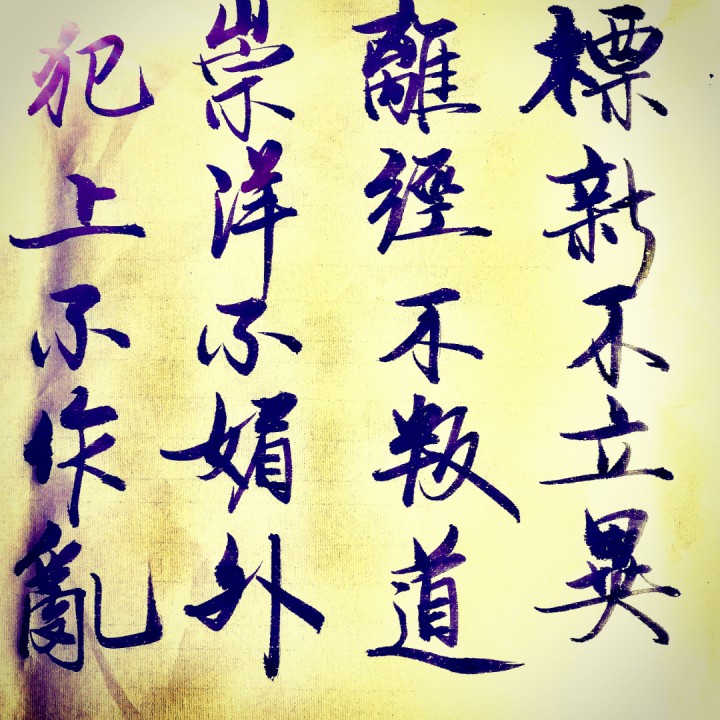 標新不立異
離經不叛道
崇洋不媚外
犯上不作亂